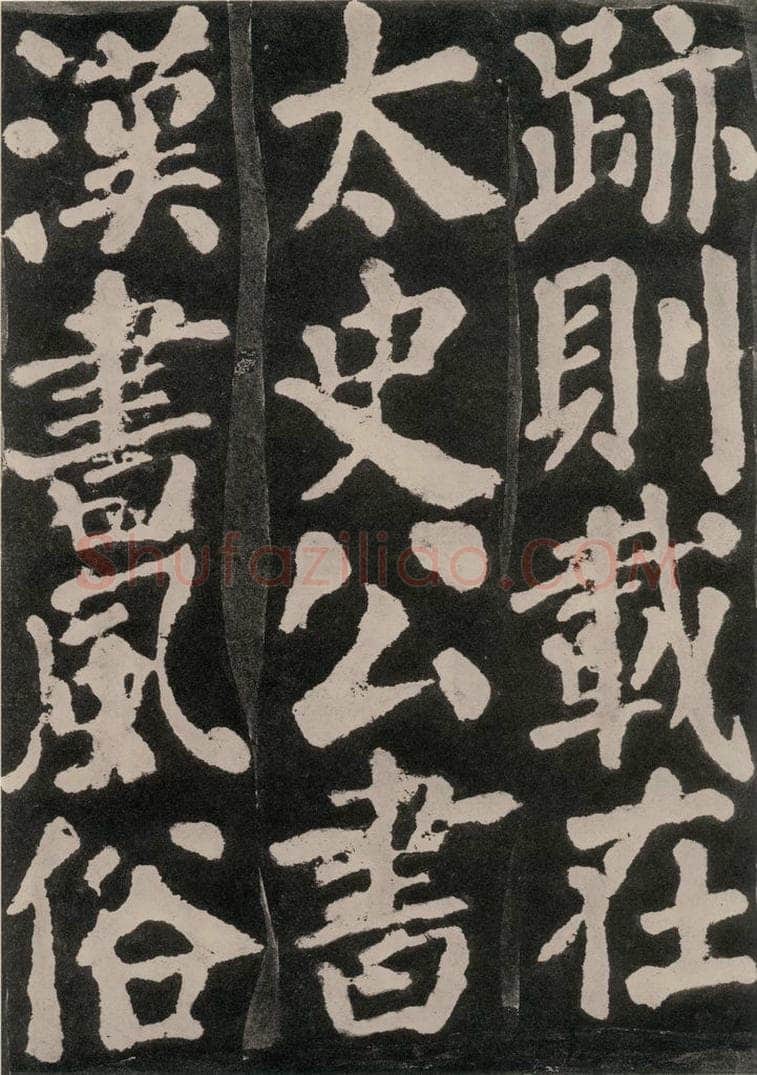 跡則載在
太史公書
漢書風俗
Shufaziliao.COM